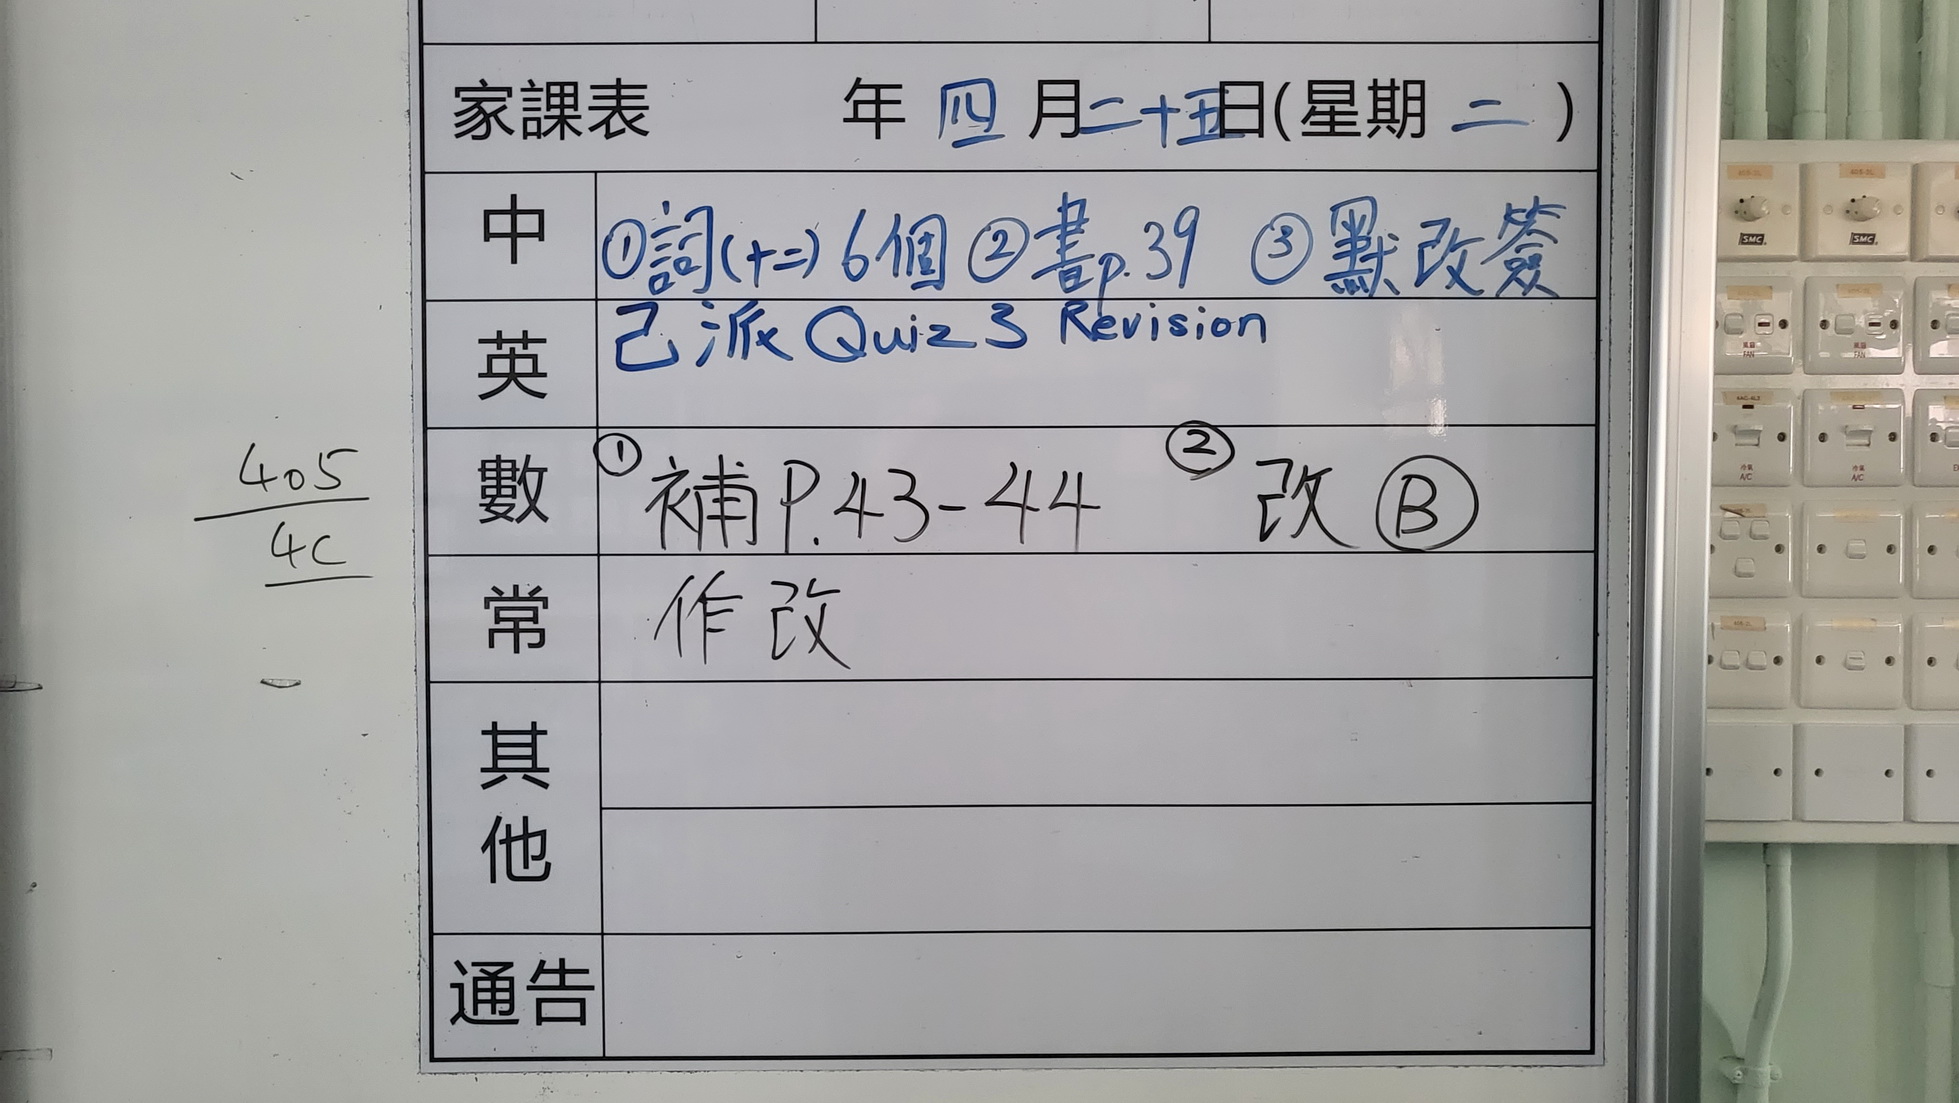 家課表 年 四 月 二十五 日(星期 二 )
中 ①詞(十二) 6個 ②書p.39 ③默改簽
英 己派 Quiz 3 Revision
數 ①補P.43-44 ②改Ⓑ
405
4C
常 作改
其他
通告
SMC
SMC
FAN
FAN
A/C
A/C